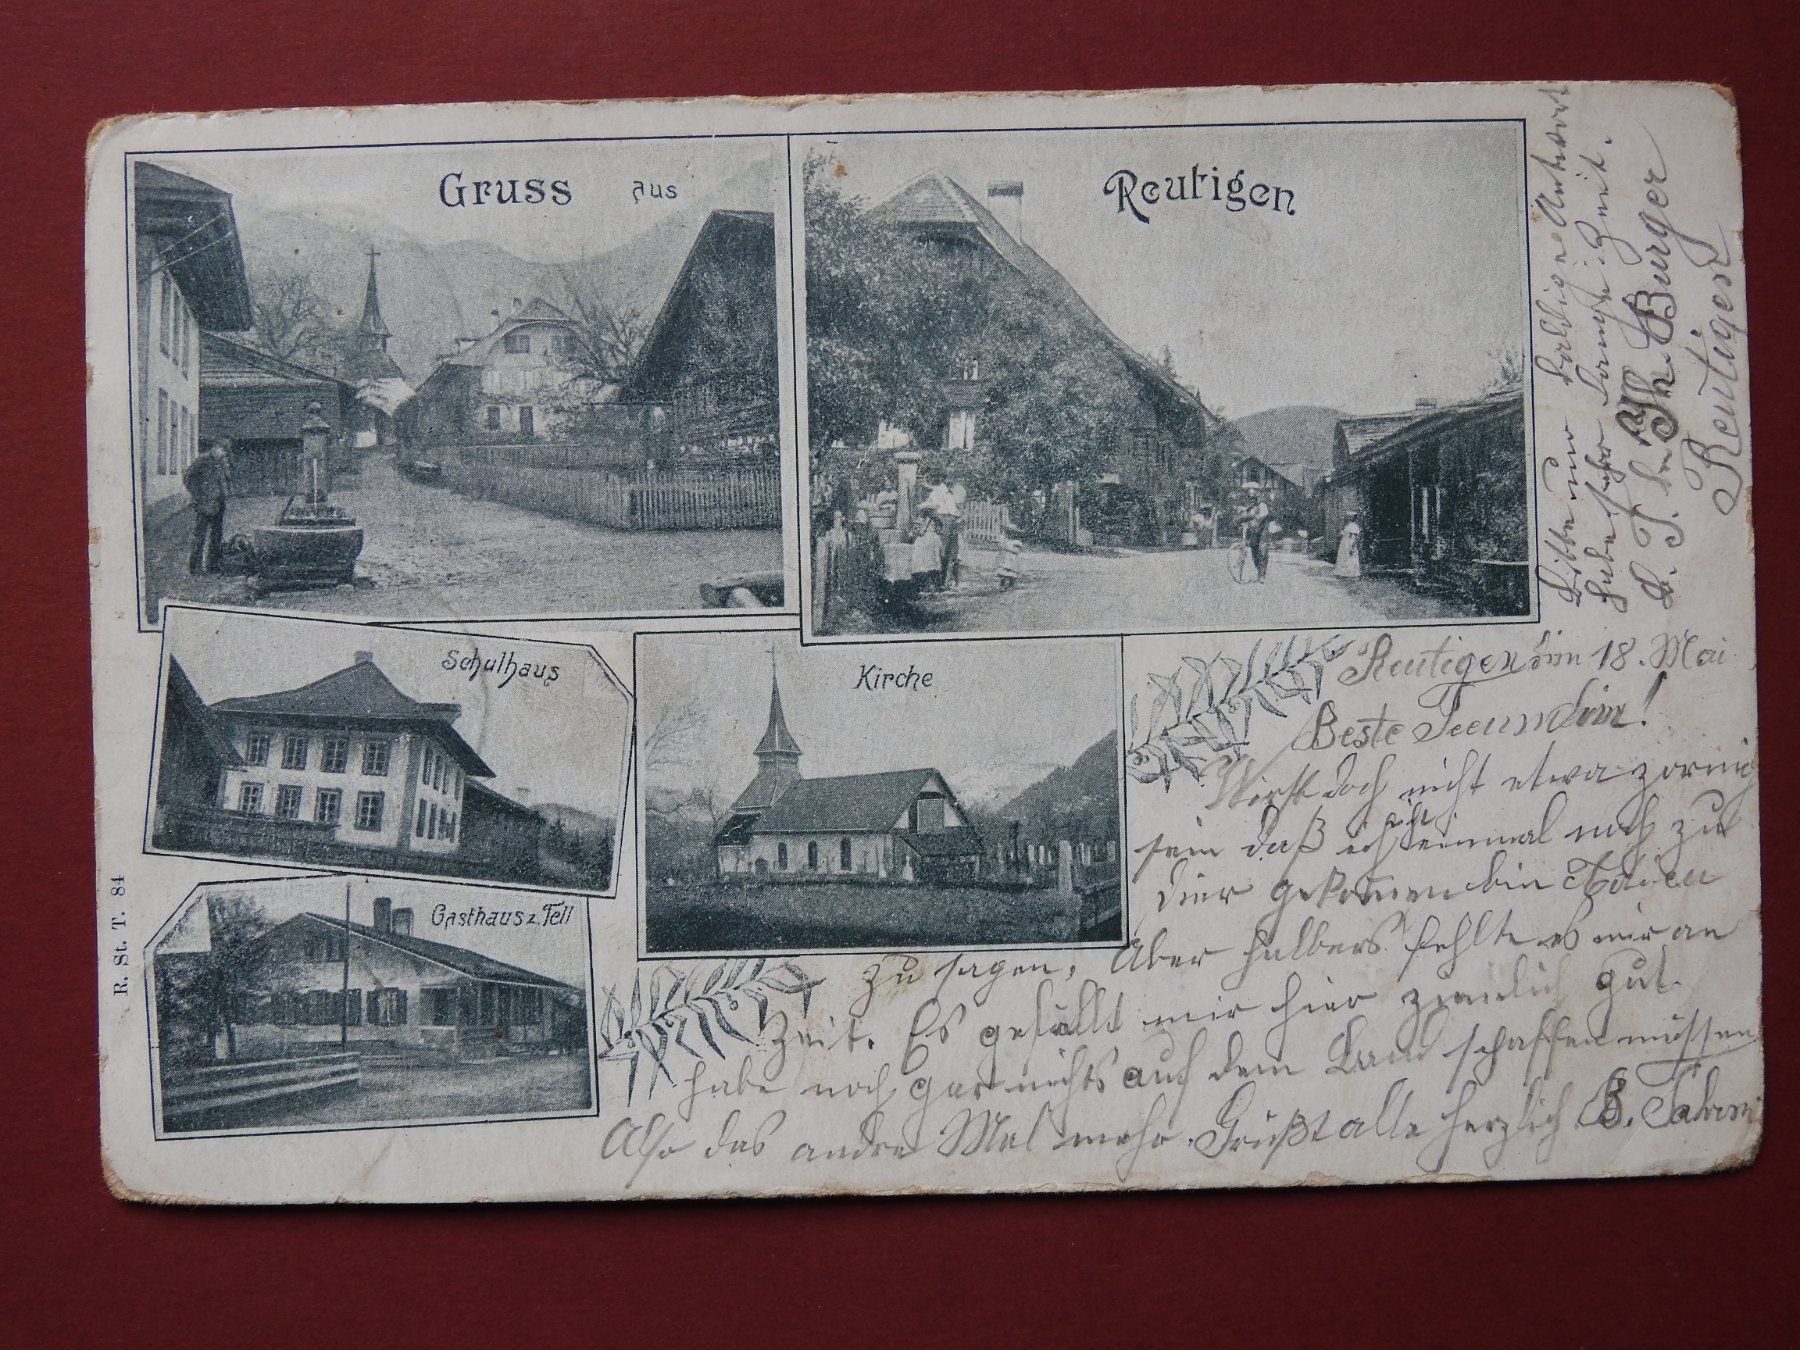 Gruss aus
Reutigen
Schulhaus
Kirche
Gasthaus z. Tell
R. St. T. 84
Reutigen dem 18. Mai
Beste Freundin!
Wirst doch nicht etwa zornig
sein daß ich nicht einmal noch zu
dier gekomen bin
zu sagen, Aber halbers fehlte es mir an
Zeit. Es gefällt mir hier zimlich gut
habe noch gar nichts auf dem Land schaffen müssen
Also das andre Mal mehr. Grüßt alle herzlich B.
Bitte um baldige Antwort
habe sehr lange Zeit.
Burger
Reutigen